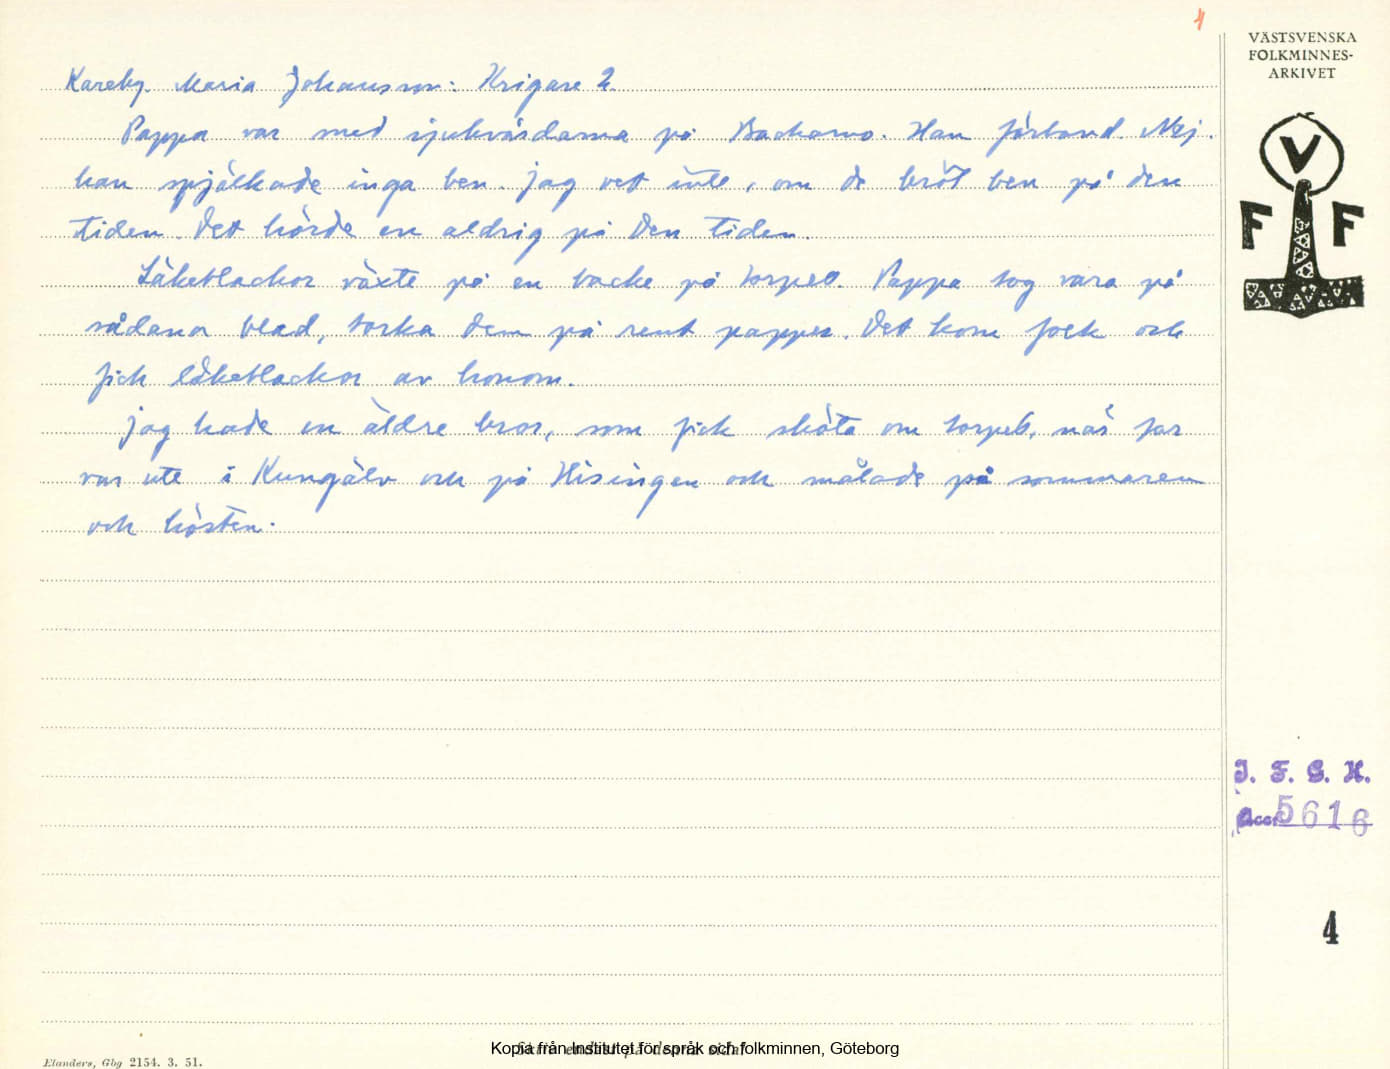 4
VÄSTSVENSKA
FOLKMINNES-
ARKIVET
V
F F
Kareby. Maria Johansson: Krigare 2
Pappa var med sjukvårdarna på Backamo. Han förband. Nej,
han spjälkade inga ben. Jag vet inte, om de bröt ben på den
tiden. Det hörde en aldrig på den tiden.
Läkeblackor växte på en backe på torpet. Pappa tog vara på
sådana blad, torka dem på rent papper. Det kom folk och
fick läkeblackor av honom.
Jag hade en äldre bror, som fick sköta om torpet, när far
var ute i Kungälv och på Hisingen och målade på sommaren
och hösten.
I. F. G. H.
Acc. 5616
4
Elanders, Gbg 2154. 3. 51.
Kopia från Institutet för språk och folkminnen, Göteborg